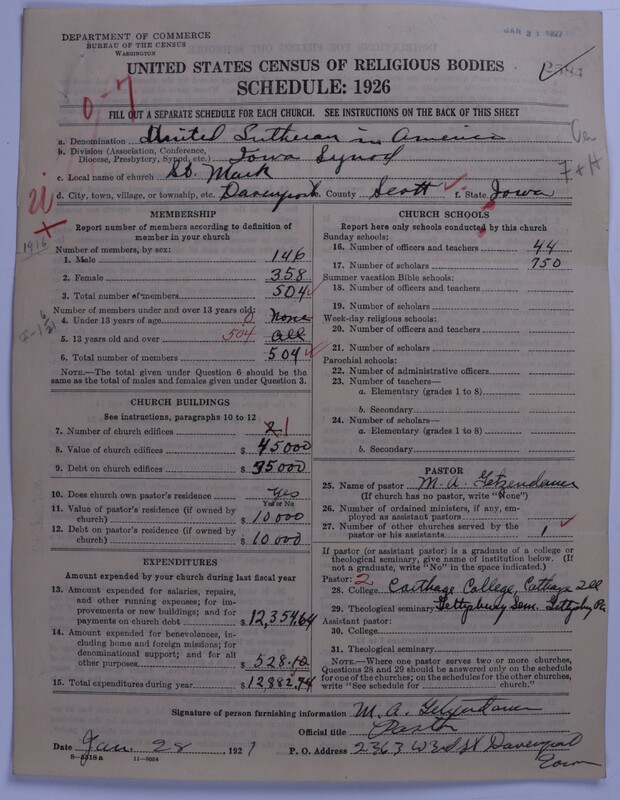 DEPARTMENT OF COMMERCE
BUREAU OF THE CENSUS
WASHINGTON
JAN 31 1927
UNITED STATES CENSUS OF RELIGIOUS BODIES
SCHEDULE: 1926
0-7
FILL OUT A SEPARATE SCHEDULE FOR EACH CHURCH. SEE INSTRUCTIONS ON THE BACK OF THIS SHEET
a. Denomination United Lutheran in America
b. Division (Association, Conference,
Diocese, Presbytery, Synod, etc.) Iowa Synod
c. Local name of church St. Mark
F + H
d. City, town, village, or township, etc. Davenport e. County Scott f. State Iowa
MEMBERSHIP
Report number of members according to definition of
member in your church
1916
Number of members, by sex:
1. Male 146
2. Female 358
3. Total number of members 504
Number of members under and over 13 years old:
4. Under 13 years of age 0 None
5. 13 years old and over 504 all
6. Total number of members 504
NOTE.—The total given under Question 6 should be the
same as the total of males and females given under Question 3.
CHURCH BUILDINGS
See instructions, paragraphs 10 to 12
7. Number of church edifices 1
8. Value of church edifices $ 45000
9. Debt on church edifices $ 35000
10. Does church own pastor's residence Yes
Yes or No
11. Value of pastor's residence (if owned by
church) $ 10 000
12. Debt on pastor's residence (if owned by
church) $ 10 000
EXPENDITURES
Amount expended by your church during last fiscal year
13. Amount expended for salaries, repairs,
and other running expenses; for im-
provements or new buildings; and for
payments on church debt $ 12,354.64
14. Amount expended for benevolences, in-
cluding home and foreign missions; for
denominational support; and for all
other purposes $ 528.10
15. Total expenditures during year $ 12882.74
CHURCH SCHOOLS
Report here only schools conducted by this church
Sunday schools:
16. Number of officers and teachers 44
17. Number of scholars 750
Summer vacation Bible schools:
18. Number of officers and teachers
19. Number of scholars
Week-day religious schools:
20. Number of officers and teachers
21. Number of scholars
Parochial schools:
22. Number of administrative officers
23. Number of teachers—
a. Elementary (grades 1 to 8)
b. Secondary
24. Number of scholars—
a. Elementary (grades 1 to 8)
b. Secondary
PASTOR
25. Name of pastor M. A. Getzendaner
(If church has no pastor, write "None")
26. Number of ordained ministers, if any, em-
ployed as assistant pastors
27. Number of other churches served by the
pastor or his assistants 1
If pastor (or assistant pastor) is a graduate of a college or
theological seminary, give name of institution below. (If
not a graduate, write "No" in the space indicated.)
Pastor: 2
28. College Carthage College, Carthage Ill
29. Theological seminary Gettysburg Sem. Gettysbg Pa
Assistant pastor:
30. College
31. Theological seminary
NOTE.—Where one pastor serves two or more churches,
Questions 28 and 29 should be answered only on the schedule
for one of the churches; on the schedules for the other churches,
write "See schedule for church."
Signature of person furnishing information M. A. Getzendaner
Official title Pastor
Date Jan. 28, 1927 P. O. Address 2363 W 3d St Davenport
Iowa
8-5318a 11-9024